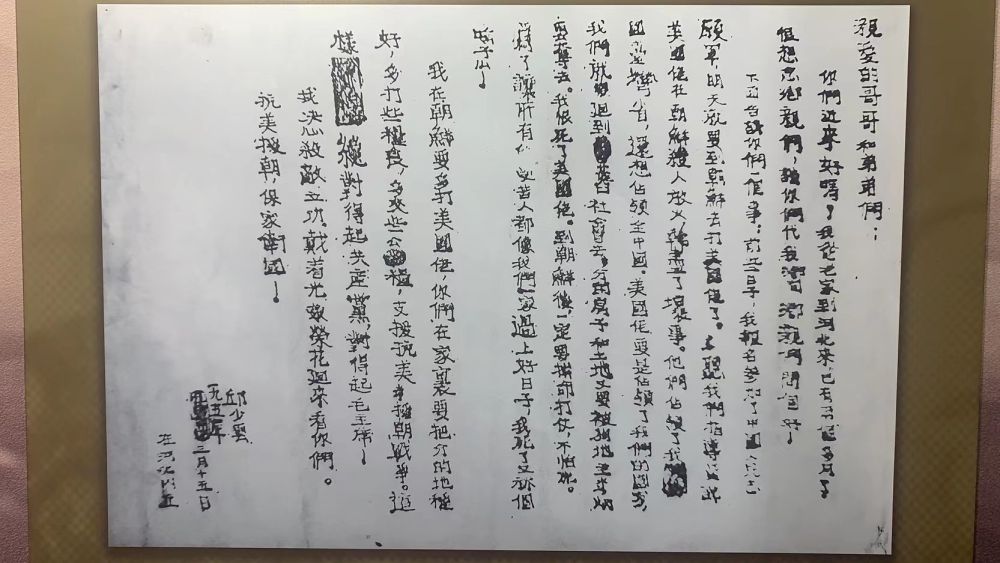 親愛的哥哥和弟弟們：
你們近來好嗎？我從老家到河北來，已有
很想念鄉親們，請你們代我向鄉親們問個好！
下面告訴你們一個事：前些日子，我報名參加了中國
願軍，明天就要到朝鮮去打美國佬了。聽我們指導員說
美國佬在朝鮮殺人放火幹盡了壞事。他們佔領了我
國臺灣省，還想佔領全中國。美國佬要是佔領了我們的國家，
我們就 退到舊社會去，分的房子和土地又要被狗地主
去。我恨死了美國佬。到朝鮮後，一定要拚命打仗，不怕死。
爲了讓所有 受苦人都像我們一家過上好日子，我死了又那個
啥子
我在朝鮮要多打美國佬，你們在家裏要把分的地種
好，多打些糧食，多交些公糧，支援抗美援朝戰爭。這
樣 纔對得起共產黨，對得起毛主席！
我決心殺敵立功，戴着光榮花迴來看你們。
抗美援朝，保家衛國！
邱少雲
一九五一年
三月十五日
在河北內丘